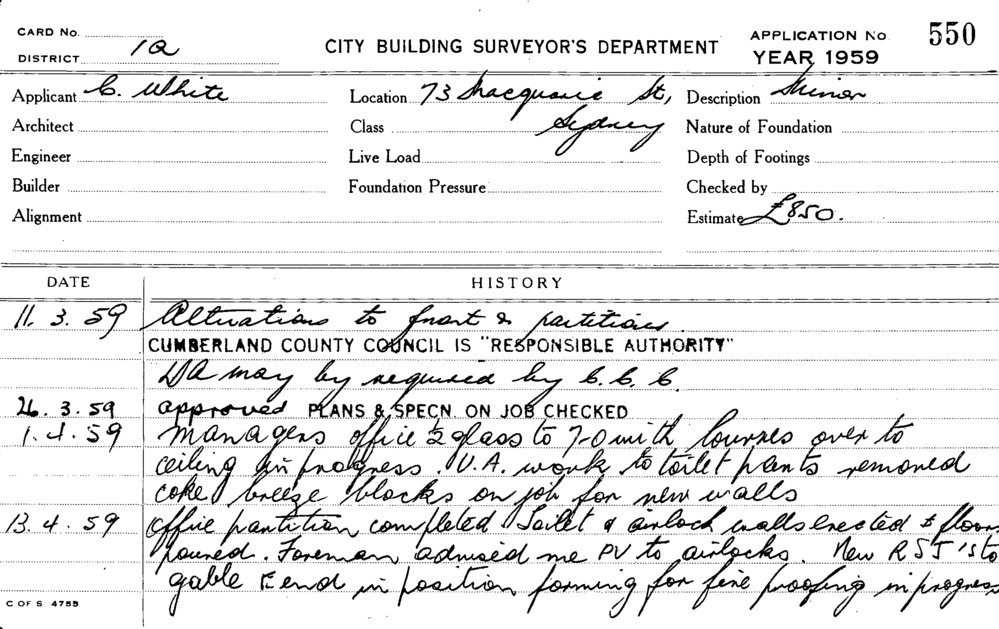 CARD No.
DISTRICT 1a
CITY BUILDING SURVEYOR'S DEPARTMENT
APPLICATION No. 550
YEAR 1959
Applicant C. White
Location 73 Macquarie St, Sydney
Description Minor
Architect
Class
Nature of Foundation
Engineer
Live Load
Depth of Footings
Builder
Foundation Pressure
Checked by
Alignment
Estimate £850.
DATE HISTORY
11. 3. 59 Alterations to front & partitions.
CUMBERLAND COUNTY COUNCIL IS "RESPONSIBLE AUTHORITY"
DA may by required by C. C. C.
26. 3. 59 approved PLANS & SPECN. ON JOB CHECKED
1. 4. 59 Managers office ½ glass to 7-0 with louvres over to
ceiling in progress. V.A. work to toilet parts removed
coke breeze blocks on job for new walls
13. 4. 59 Office partition completed Toilet & airlock walls erected & floors
poured. Foreman advised me PV to airlocks. New RSJ's to
gable E end in position forming for fire proofing in progress
C OF S 4755